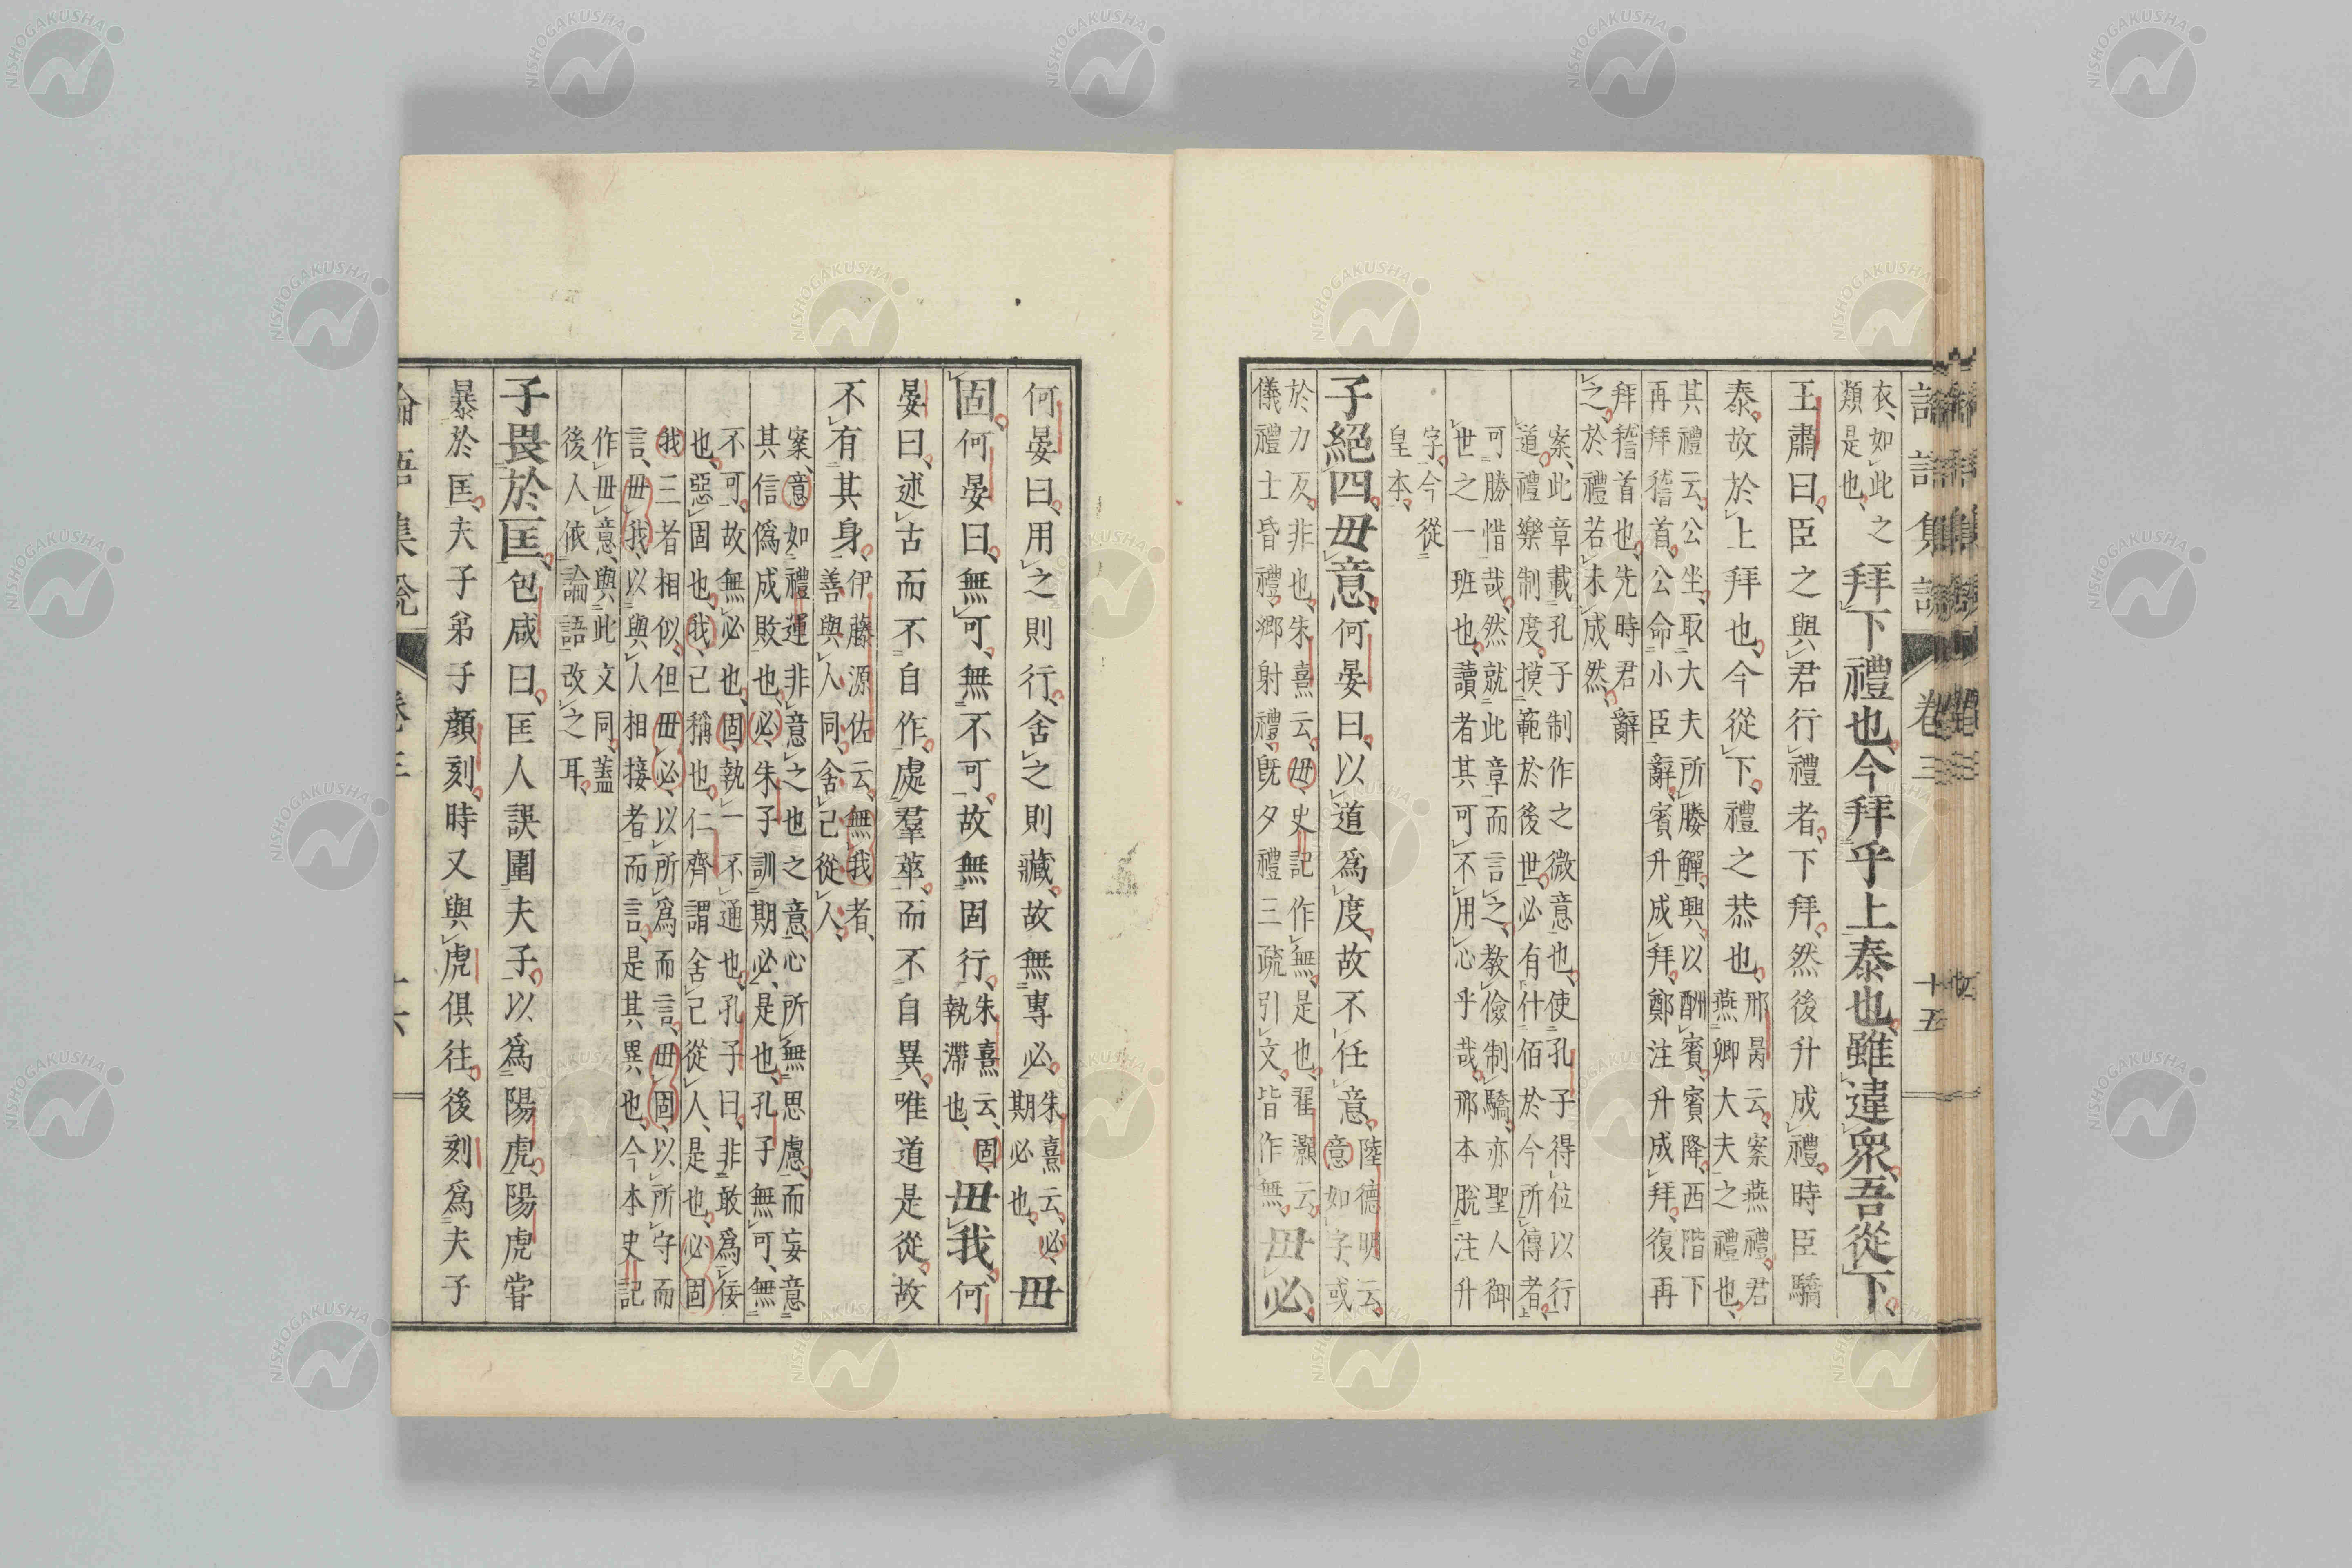 論語集說 卷三 十五
衣、如此之
類是也、
拜下禮也。今拜乎上泰也。雖違衆、吾從下、
王肅曰、臣之與君行禮者、下拜、然後升成禮、時臣驕
泰、故於上拜也、今從下、禮之恭也、
邢昺云、案燕禮、君
燕卿大夫之禮也、
其禮云、公坐、取大夫所媵觶、興、以酬賓、賓降、西階下
再拜稽首、公命小臣辭、賓升成拜、鄭注升成拜、復再
拜稽首也、先時君辭
之、於禮若未成然、
案、此章載孔子制作之微意也、使孔子得位以行
道、禮樂制度、摸範於後世、必有什佰於今所傳者、
可勝惜哉、然就此章而言之、教儉制驕、亦聖人御
世之一班也、讀者其可不用心乎哉、邢本脫注升
字、今從
皇本、
子絕四、毋意、何晏曰、以道爲度、故不任意、
陸德明云、
意如字、或
於力反、非也、朱熹云、毋、史記作無、是也、翟灝云、
儀禮士昏禮、鄉射禮、旣夕禮三疏引文、皆作無、
毋必、
何晏曰、用之則行、舍之則藏、故無專必、
朱熹云、必、
期必也、
毋
固、何晏曰、無可、無不可、故無固行、
朱熹云、固、
執滯也、
毋我、何
晏曰、述古而不自作、處羣萃、而不自異、唯道是從、故
不有其身、
伊藤源佐云、無我者、
善與人同、舍己從人、
案、意如禮運非意之也之意、心所無思慮、而妄意
其信僞成敗也、必、朱子訓期必、是也、孔子無可、無
不可、故無必也、固、執一不通也、孔子曰、非敢爲佞
也、惡固也、我、己稱也、仁齊謂舍己從人、是也、必固
我三者相似、但毋必、以所爲而言、毋固、以所守而
言、毋我、以與人相接者而言、是其異也、今本史記
作毋意、與此文同、蓋
後人依論語改之耳、
子畏於匡、包咸曰、匡人誤圍夫子、以爲陽虎、陽虎嘗
暴於匡、夫子弟子顏刻、時又與虎俱往、後刻爲夫子
論語集說 卷三 十六
NISHOGAKUSHA